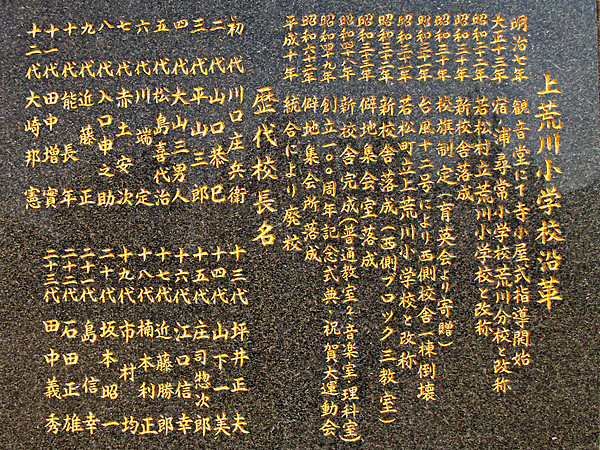 上荒川小学校沿革
明治七年 観音堂にて寺小屋式指導開始
大正十三年 宿浦尋常小学校荒川分校と改称
昭和二十二年 若松村立荒川小学校と改称
昭和二十三年 新校舎落成
昭和三十年 校旗制定(育英会より寄贈)
昭和三十年 台風十二号により西側校舎一棟倒壊
昭和三十年 若松町立上荒川小学校と改称
昭和三十二年 新校舎落成(西側ブロック三教室)
昭和三十三年 僻地集会室落成
昭和四八年 新校舎完成(普通教室2・音楽室・理科室)
昭和四九年 創立一〇〇周年記念式典・祝賀大運動会
昭和六十二年 僻地集会所落成
平成十年 統合により廃校
歴代校長名
初代 川口庄兵衛
二代 山口恭巳
三代 平山三郎
四代 大山三男人
五代 松島喜代治
六代 川端定
七代 赤土安次
八代 入口申之助
九代 近藤正
十代 能長年
十一代 田中増實
十二代 大崎邦憲
十三代 坪井正夫
十四代 山下一美
十五代 庄司惣次郎
十六代 江口信幸
十七代 近藤勝郎
十八代 楠本利正
十九代 市村均
二十代 坂本昭一
二十一代 島信幸
二十二代 石田正雄
二十三代 田中義秀